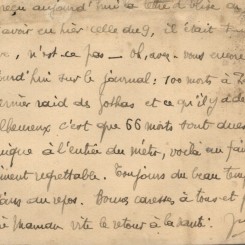 reçu aujourd'hui la lettre d'Elise du
avoir eu hier celle du 9, il était
, n'est-ce pas - Oh, oui, vous encore
ourd'hui sur le journal : 100 morts à
ernier raid de gothas et ce qu'il y a de
lheureux c'est que 66 morts sont dues
nique à l'entrée du métro, voilà un fai
ment regrettable. Toujours du beau tem
ours au repos. Bonnes caresses à tous et p
à Maman vite le retour à la santé :